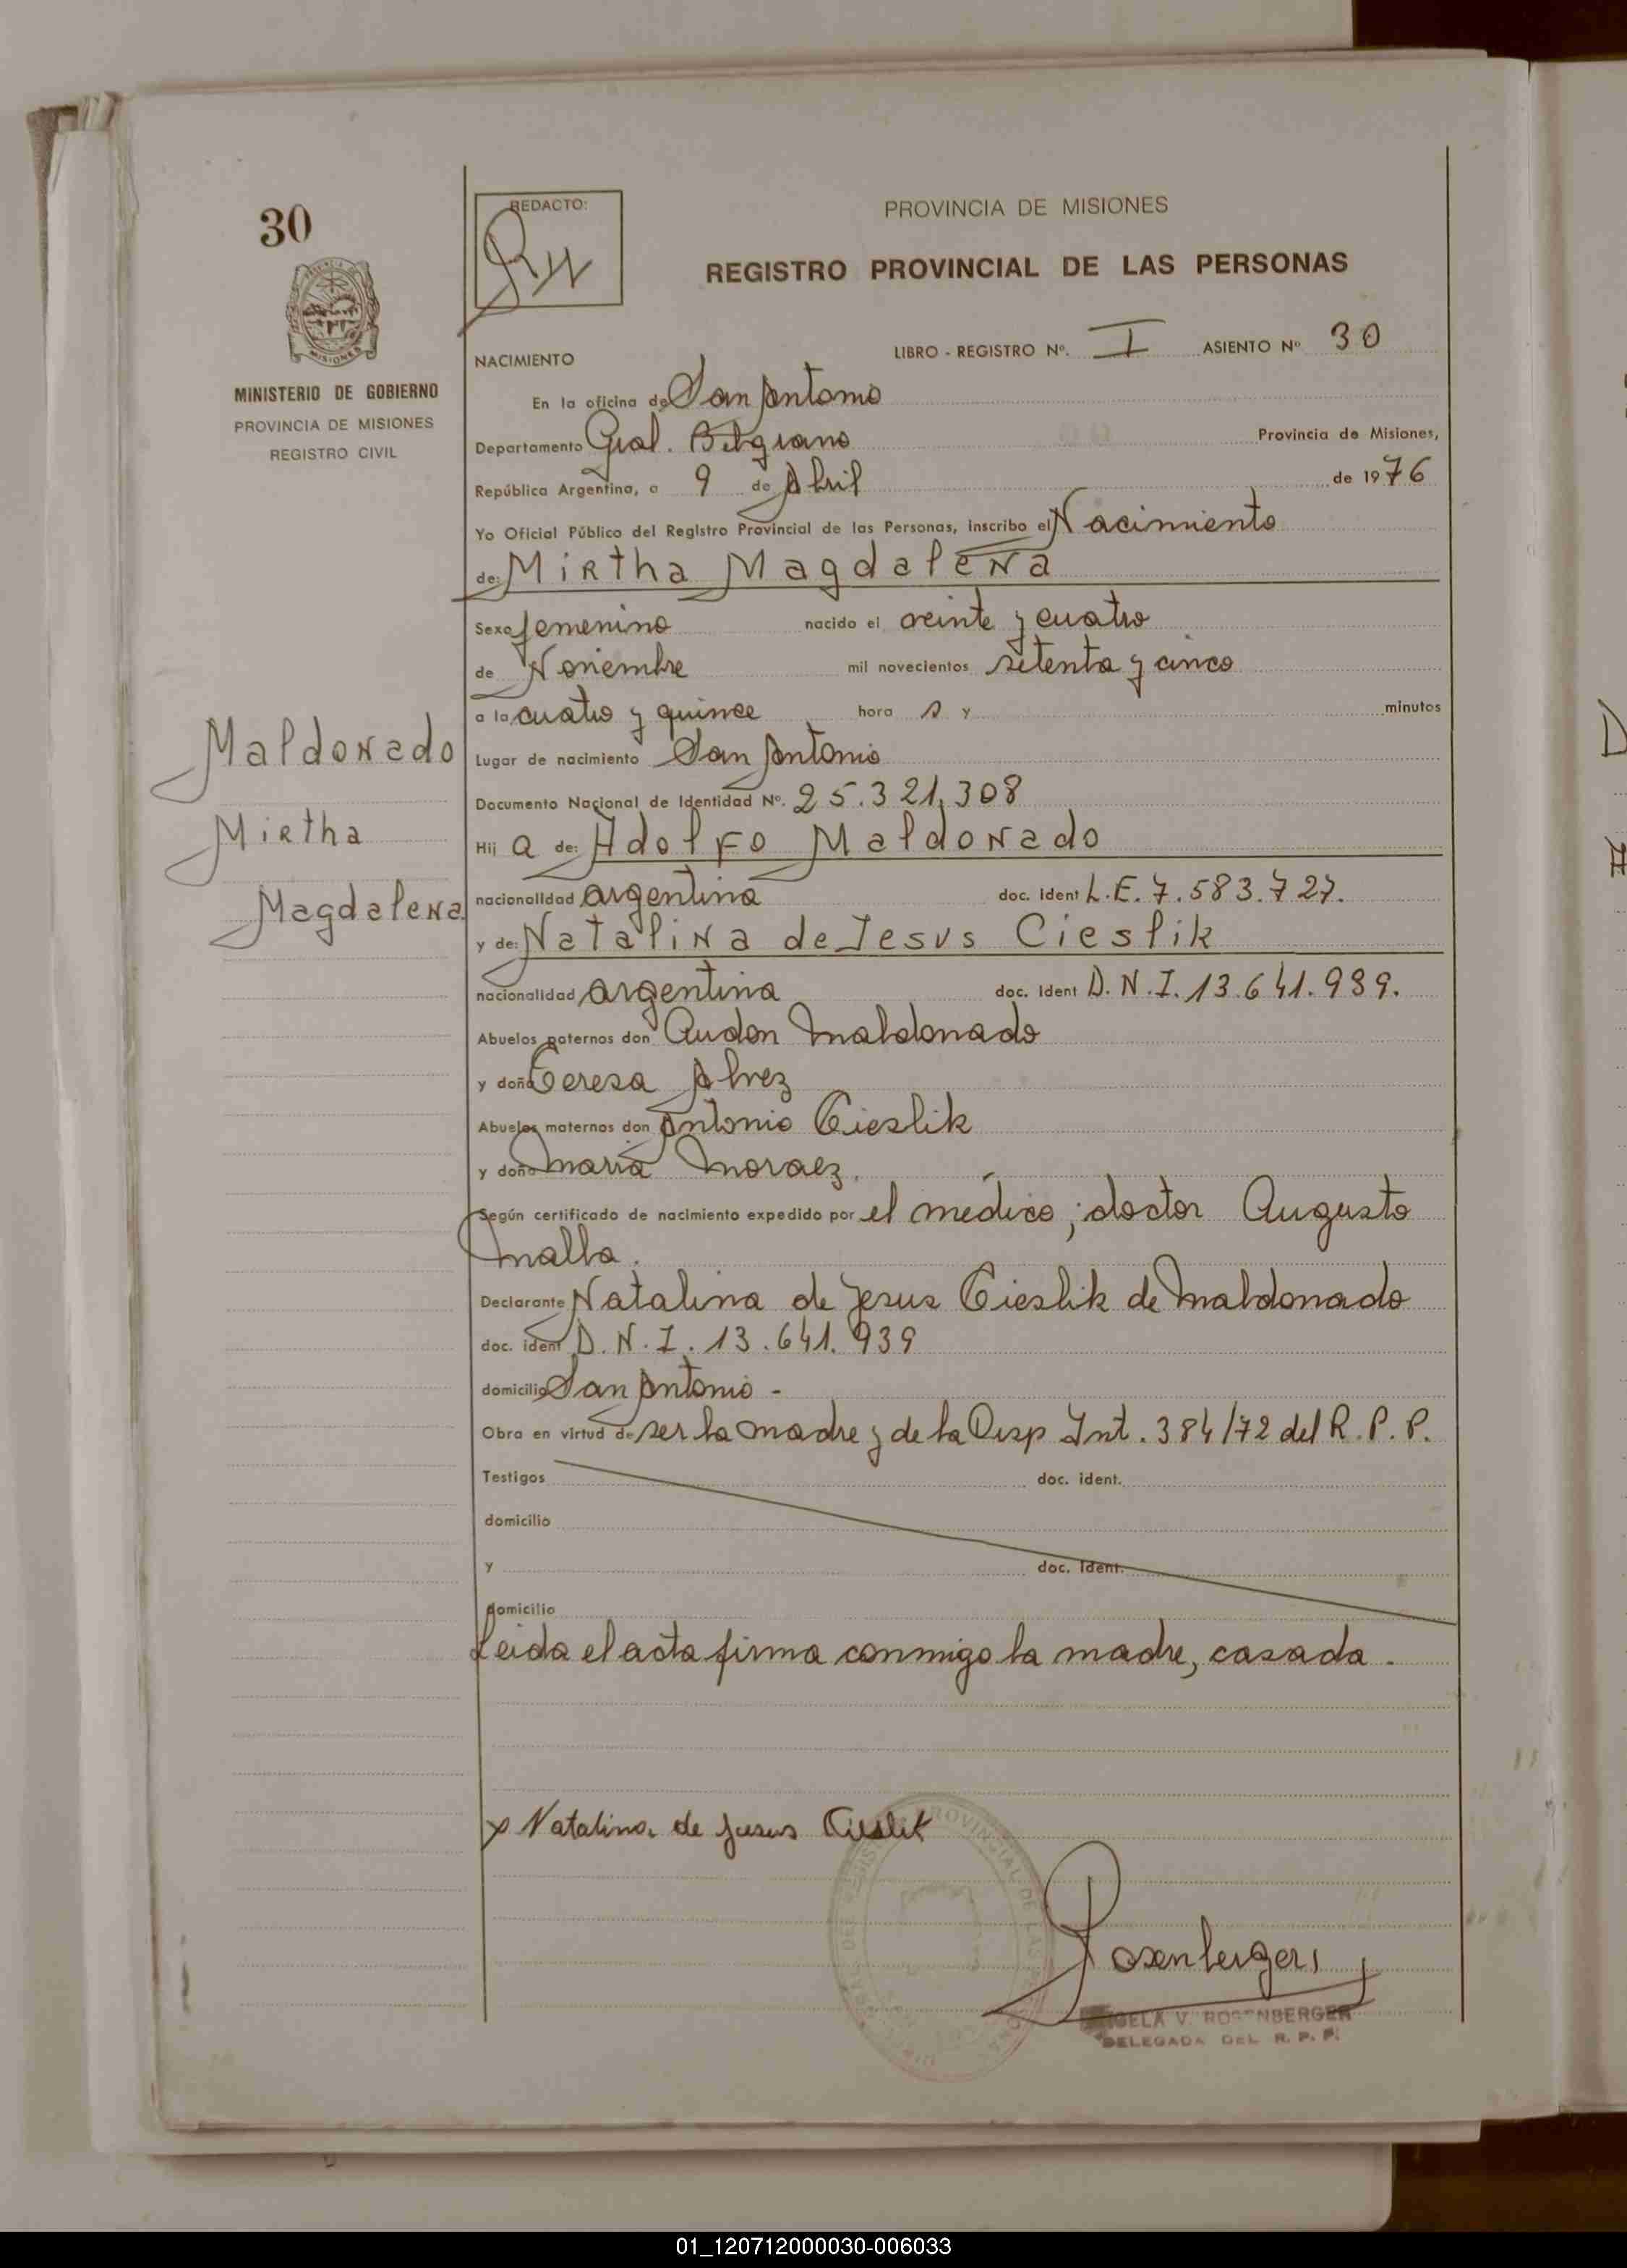 30
REDACTO:
PROVINCIA DE MISIONES
REGISTRO PROVINCIAL DE LAS PERSONAS
MISIONES
MINISTERIO DE GOBIERNO
PROVINCIA DE MISIONES
REGISTRO CIVIL
NACIMIENTO
LIBRO - REGISTRO Nº. I ASIENTO Nº 30
En la oficina de San Antonio
Departamento Gral. Belgrano Provincia de Misiones,
República Argentina, a 9 de Abril de 1976
Yo Oficial Público del Registro Provincial de las Personas, inscribo el Nacimiento
de: Mirtha Magdalena
Sexo femenino nacido el veinte y cuatro
de Noviembre mil novecientos setenta y cinco
a la cuatro y quince hora s y minutos
Lugar de nacimiento San Antonio
Documento Nacional de Identidad Nº. 25.321.308
Maldonado
Mirtha
Magdalena
Hij a de: Adolfo Maldonado
nacionalidad argentina doc. ident L.E. 7.583.727.
y de: Natalina de Jesus Cieslik
nacionalidad argentina doc. ident D.N.I. 13.641.939.
Abuelos paternos don Audon Maldonado
y doña Teresa Alvez
Abuelos maternos don Antonio Cieslik
y doña Maria Moraez.
Según certificado de nacimiento expedido por el médico; doctor Augusto
Malla.
Declarante Natalina de Jesus Cieslik de Maldonado
doc. ident D.N.I. 13.641.939
domicilio San Antonio -
Obra en virtud de ser la madre y de la Disp Int. 384/72 del R.P.P.
Testigos doc. ident.
domicilio
y doc. ident.
domicilio
Leida el acta firma conmigo la madre, casada.
x Natalina de Jesus Cieslik
Rosenberger
V. ROSENBERGER
DELEGADA DEL R. P. P.
01_120712000030-006033